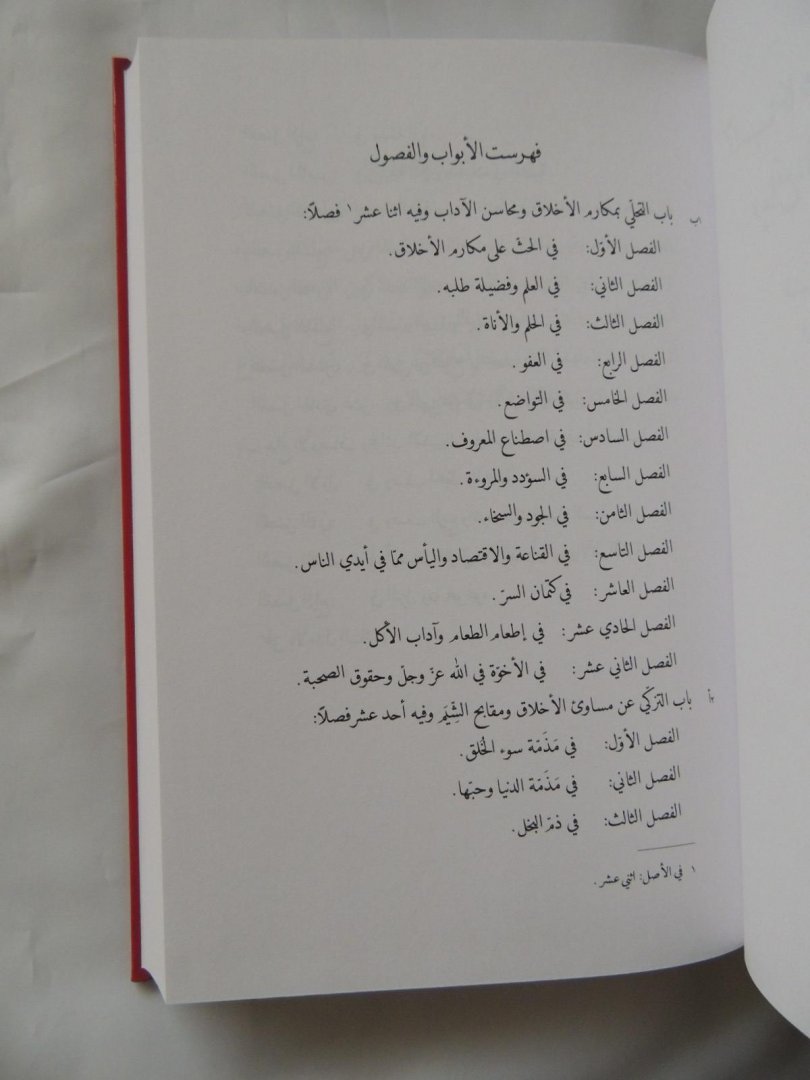 فهرست الأبواب والفصول
باب التحلّي بمكارم الأخلاق ومحاسن الآداب وفيه اثنا عشر١ فصلاً:
الفصل الأوّل: في الحثّ على مكارم الأخلاق.
الفصل الثاني: في العلم وفضيلة طلبه.
الفصل الثالث: في الحلم والأناة.
الفصل الرابع: في العفو.
الفصل الخامس: في التواضع.
الفصل السادس: في اصطناع المعروف.
الفصل السابع: في السؤدد والمروءة.
الفصل الثامن: في الجود والسخاء.
الفصل التاسع: في القناعة والاقتصاد واليأس ممّا في أيدي الناس.
الفصل العاشر: في كتمان السرّ.
الفصل الحادي عشر: في إطعام الطعام وآداب الأكل.
الفصل الثاني عشر: في الأخوّة في الله عزّ وجلّ وحقوق الصحبة.
باب التزكّي عن مساوئ الأخلاق ومقابح الشِيَم وفيه أحد عشر فصلاً:
الفصل الأوّل: في مَذَمّة سوء الخُلق.
الفصل الثاني: في مَذَمّة الدنيا وحبّها.
الفصل الثالث: في ذمّ البخل.
١ في الأصل: اثني عشر.